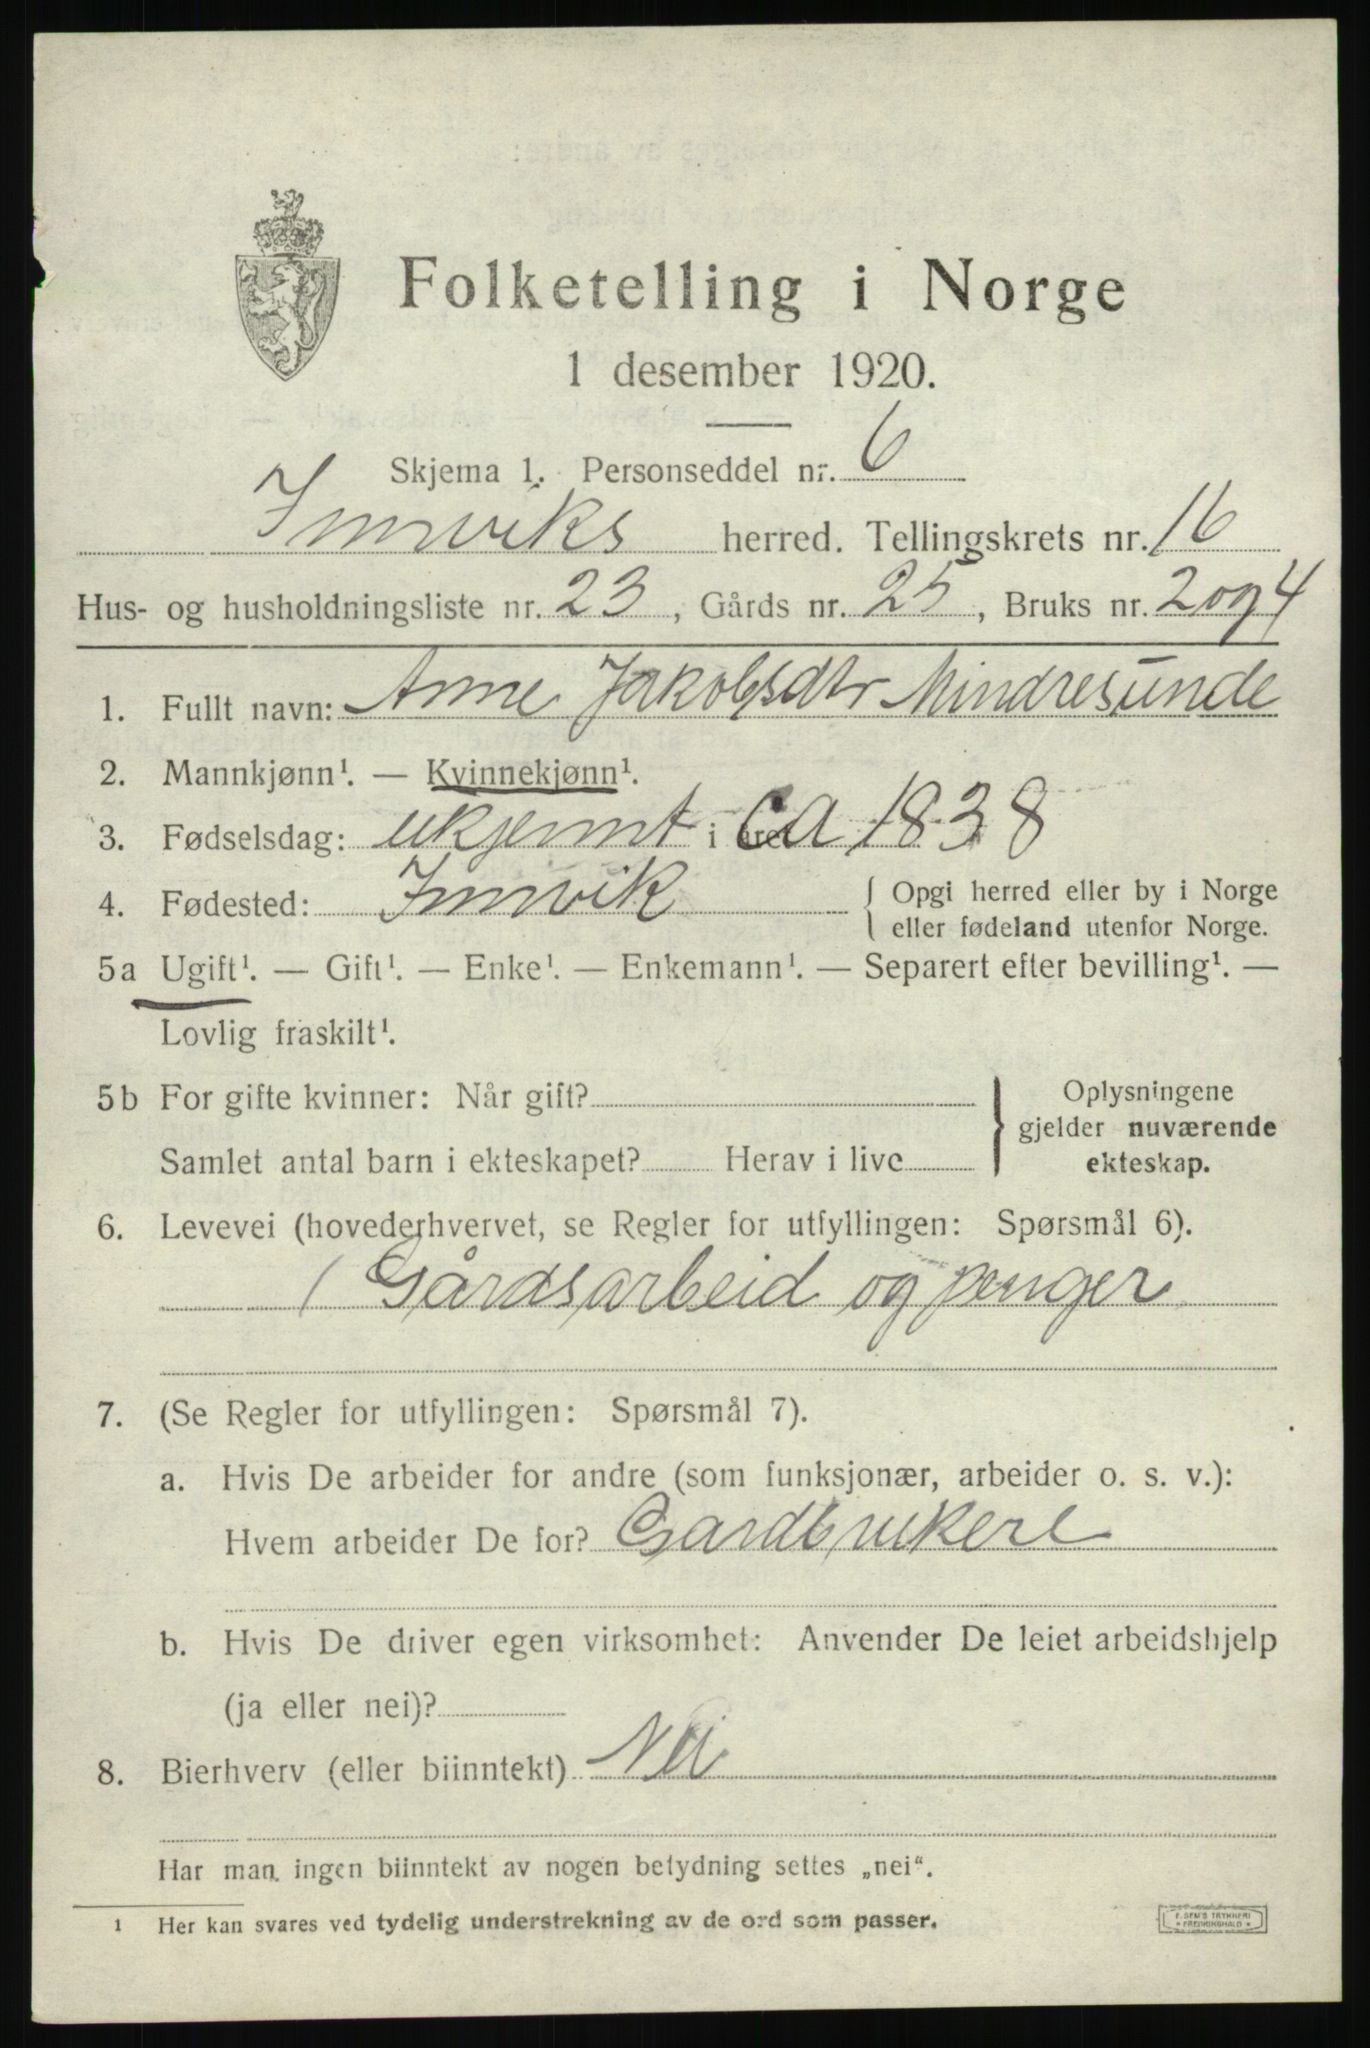 Folketelling i Norge
1 desember 1920.
Skjema 1. Personseddel nr. 6
Innviks herred. Tellingskrets nr. 16
Hus- og husholdningsliste nr. 23, Gårds nr. 25, Bruks nr. 2 og 4
1. Fullt navn: Anne Jakobsdtr Mindresunde
2. Mannkjønn¹. — Kvinnekjønn¹.
3. Fødselsdag: ukjennt i året ca 1838
4. Fødested: Innvik { Opgi herred eller by i Norge
eller fødeland utenfor Norge.
5a Ugift¹. — Gift¹. — Enke¹. — Enkemann¹. — Separert efter bevilling¹. —
Lovlig fraskilt¹.
5b For gifte kvinner: Når gift? } Oplysningene
gjelder nuværende
Samlet antal barn i ekteskapet? Herav i live ekteskap.
6. Levevei (hovederhvervet, se Regler for utfyllingen: Spørsmål 6).
Gårdsarbeid og penger
7. (Se Regler for utfyllingen: Spørsmål 7).
a. Hvis De arbeider for andre (som funksjonær, arbeider o. s. v.):
Hvem arbeider De for? Gardbrukere
b. Hvis De driver egen virksomhet: Anvender De leiet arbeidshjelp
(ja eller nei)?
8. Bierhverv (eller biinntekt) Nei
Har man ingen biinntekt av nogen betydning settes „nei“.
¹ Her kan svares ved tydelig understrekning av de ord som passer.
E. SEM'S TRYKKERI
* FREDRIKSHALD *